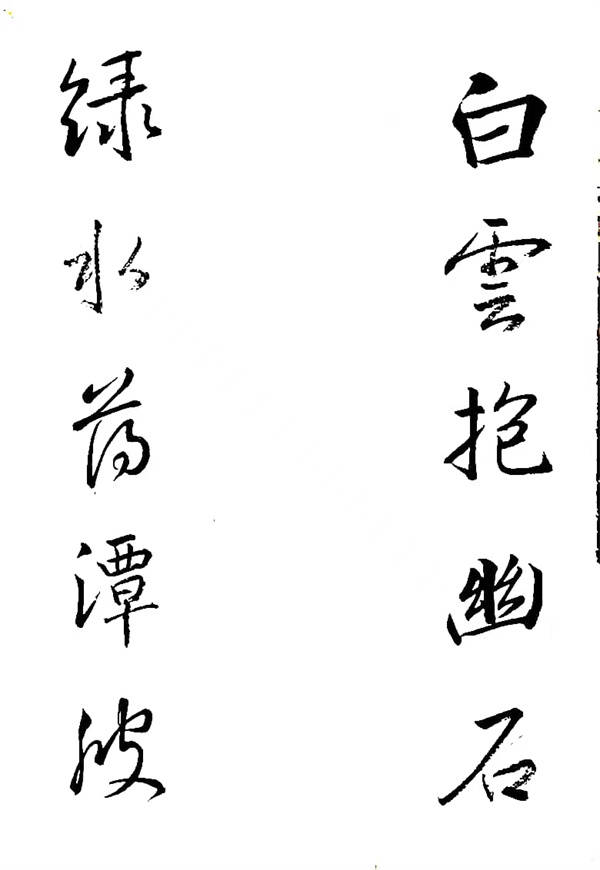 白雲抱幽石
緑水蕩潭